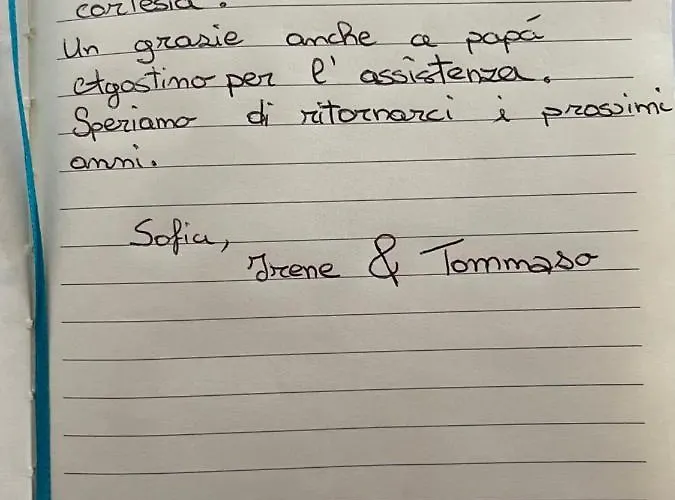 cortesia.
Un grazie anche a papá
Agostino per l'assistenza.
Speriamo di ritornarci i prossimi
anni.
Sofia,
Irene & Tommaso